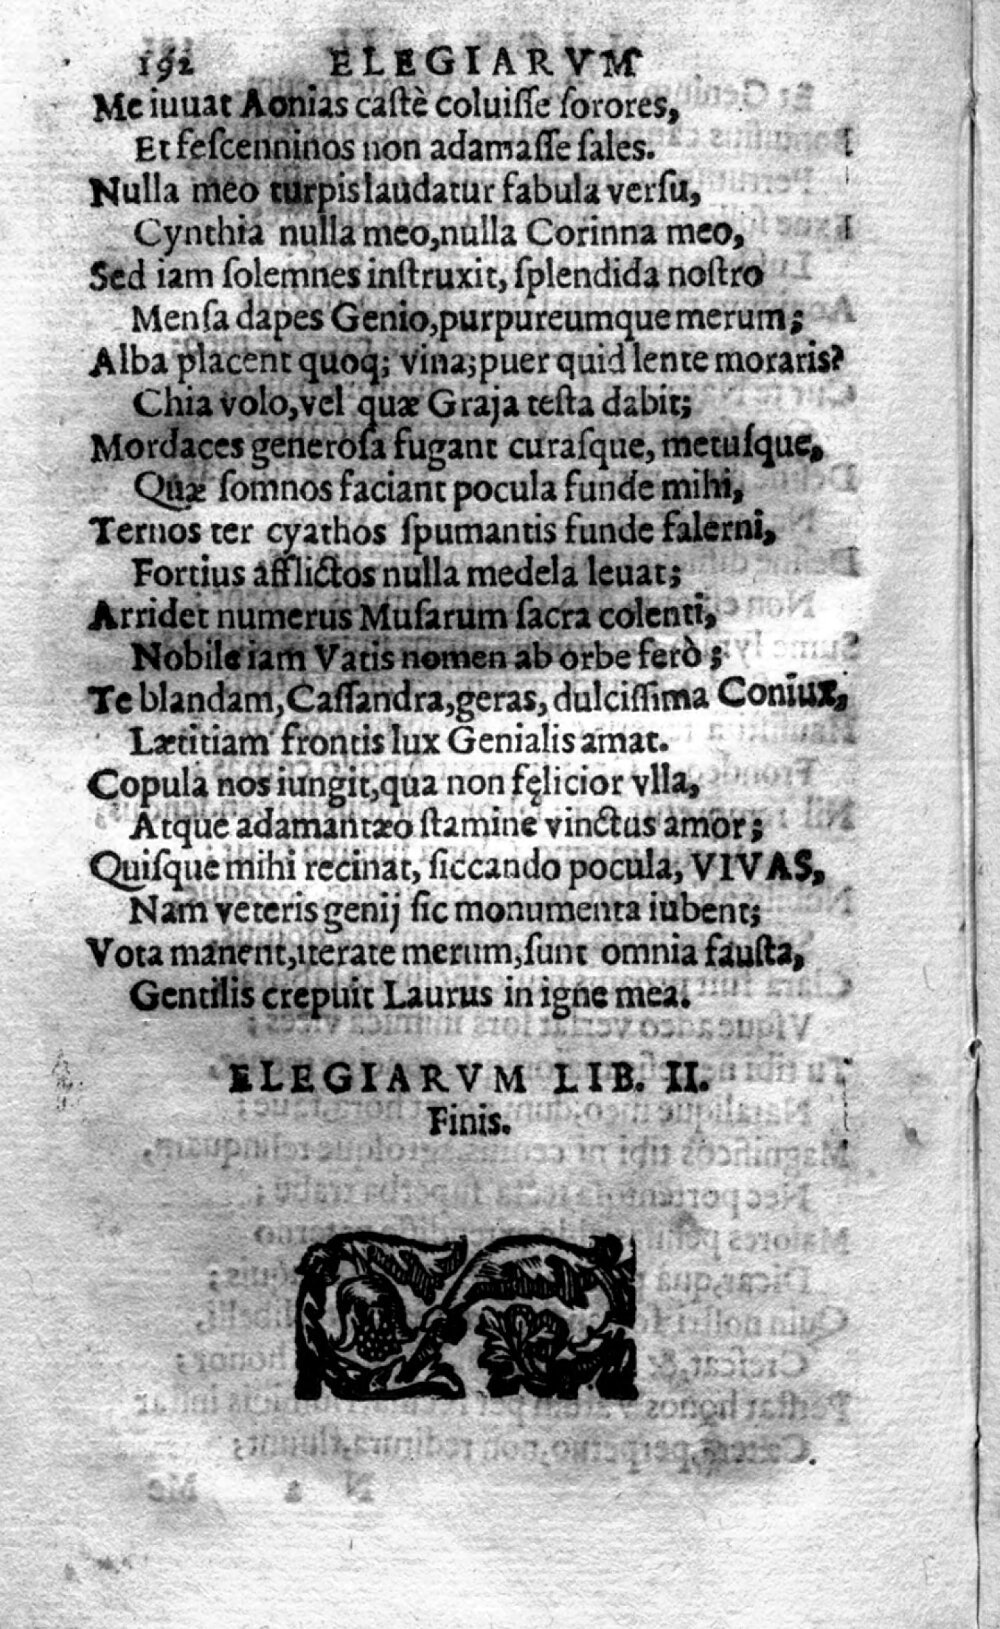 192 ELEGIARVM
Me iuuat Aonias castè coluiſſe ſorores,
Et feſcenninos non adamaſſe ſales.
Nulla meo turpis laudatur fabula verſu,
Cynthia nulla meo, nulla Corinna meo,
Sed iam ſolemnes inſtruxit, ſplendida noſtro
Menſa dapes Genio, purpureumque merum;
Alba placent quoq; vina; puer quid lente moraris?
Chia volo, vel quæ Graja teſta dabit;
Mordaces generoſa fugant curaſque, metuſque,
Quæ ſomnos faciant pocula funde mihi,
Ternos ter cyathos ſpumantis funde falerni,
Fortius afflictos nulla medela leuat;
Arridet numerus Muſarum ſacra colenti,
Nobile iam Vatis nomen ab orbe ferò;
Te blandam, Caſſandra, geras, dulciſſima Coniux,
Lætitiam frontis lux Genialis amat.
Copula nos iungit, qua non fęlicior vlla,
Atque adamantæo ſtamine vinctus amor;
Quiſque mihi recinat, ſiccando pocula, VIVAS,
Nam veteris genij ſic monumenta iubent;
Vota manent, iterate merum, ſunt omnia fauſta,
Gentilis crepuit Laurus in igne mea.
ELEGIARVM LIB. II.
Finis.